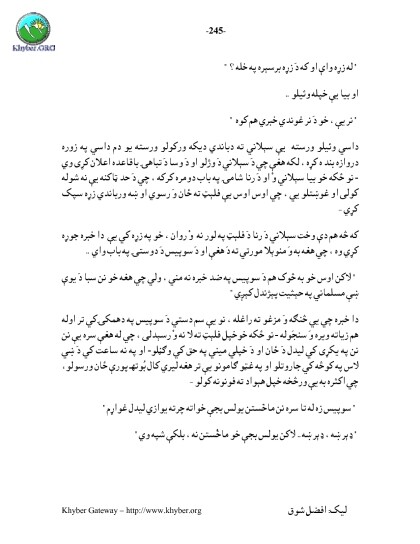 -245-
Khyber.ORG
"له زړه وايې او که دَ زړه بر سېره په خله؟"
او بيا يې خپله وئيلو ..
"تر يې ، خو دَ نر غوندې خبرې هم کوه"
داسې وئيلو ورسته يې سېلانۍ ته دباندې ديکه ورکولو ورسته يو دم داسې په زوره
دروازه بنده کړه ، لکه هغې چې دَ سېلانۍ دَ وژلو او دَ وسا دَ تباهۍ باقاعده اعلان کړی وي
- نو ځکه خو بيا سېلانۍ وُ او دَ رنا شامۍ په باب دومره کرکه ، چې دَ حد ټاکنه يې نه شوله
کولی او غوښتلو يې ، چې اوس اوس يې فليټ ته ځان وَ رسوي او ښه ورباندې زړه سپک
کړي -
که څه هم دې وخت سېلانۍ دَ رنا دَ فليټ په لور نه وُ روان ، خو په زړه کې يې دا خبره جوړه
کړې وه ، چې هغه به وَ منو پلا مورنې ته دَ هغې او دَ سوپيس دَ دوستۍ په باب واي ..
"لاکن اوس خو به څوک هم دَ سوپيس په ضد خبره نه مني ، ولې چې هغه خو نن سبا دَ يوې
ښې مسلمانې په حيثيت پېژندل کېږي"
دا خبره چې يې څنګه وَ مزغو ته راغله ، نو يې سم دستي دَ سوپيس په دهمکۍ کې تر اوله
هم زياته ويره وَ سنجوله - نو ځکه خو خپل فليټ ته لا نه وُ رسېدلی ، چې له هغې سره يې نن
نن په يکړۍ کې ليدل دَ ځان او دَ خپلې ميني په حق کې وګڼلو - او په نه ساعت کې دَ ښي
لاس په کوڅه کې جاروتلو او په غټو ګامونو يې تر هغه لېري کال بُوتهه پورې ځان ورسولو ،
چې اکثره به يې ورڅخه خپل هېواد ته فونونه کولو -
"سوپيس زه له تا سره نن ماښستن يولس بجې خواته چرته يوازې ليدل غواړم"
"ډېر ښه ، ډېر ښه - لاکن يولس بجې خو ماښستن نه ، بلکې شپه وي"
Khyber Gateway – http://www.khyber.org
ليک: افضل شوق